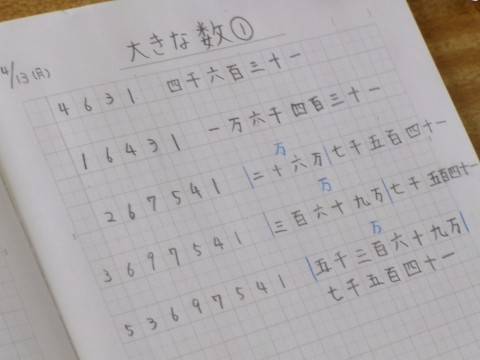 4/13(月)
大きな数①
4631 四千六百三十一
16431 一万六千四百三十一
万
267541 二十六万七千五百四十一
万
3697541 三百六十九万七千五百四十一
万
53697541 五千三百六十九万
七千五百四十一